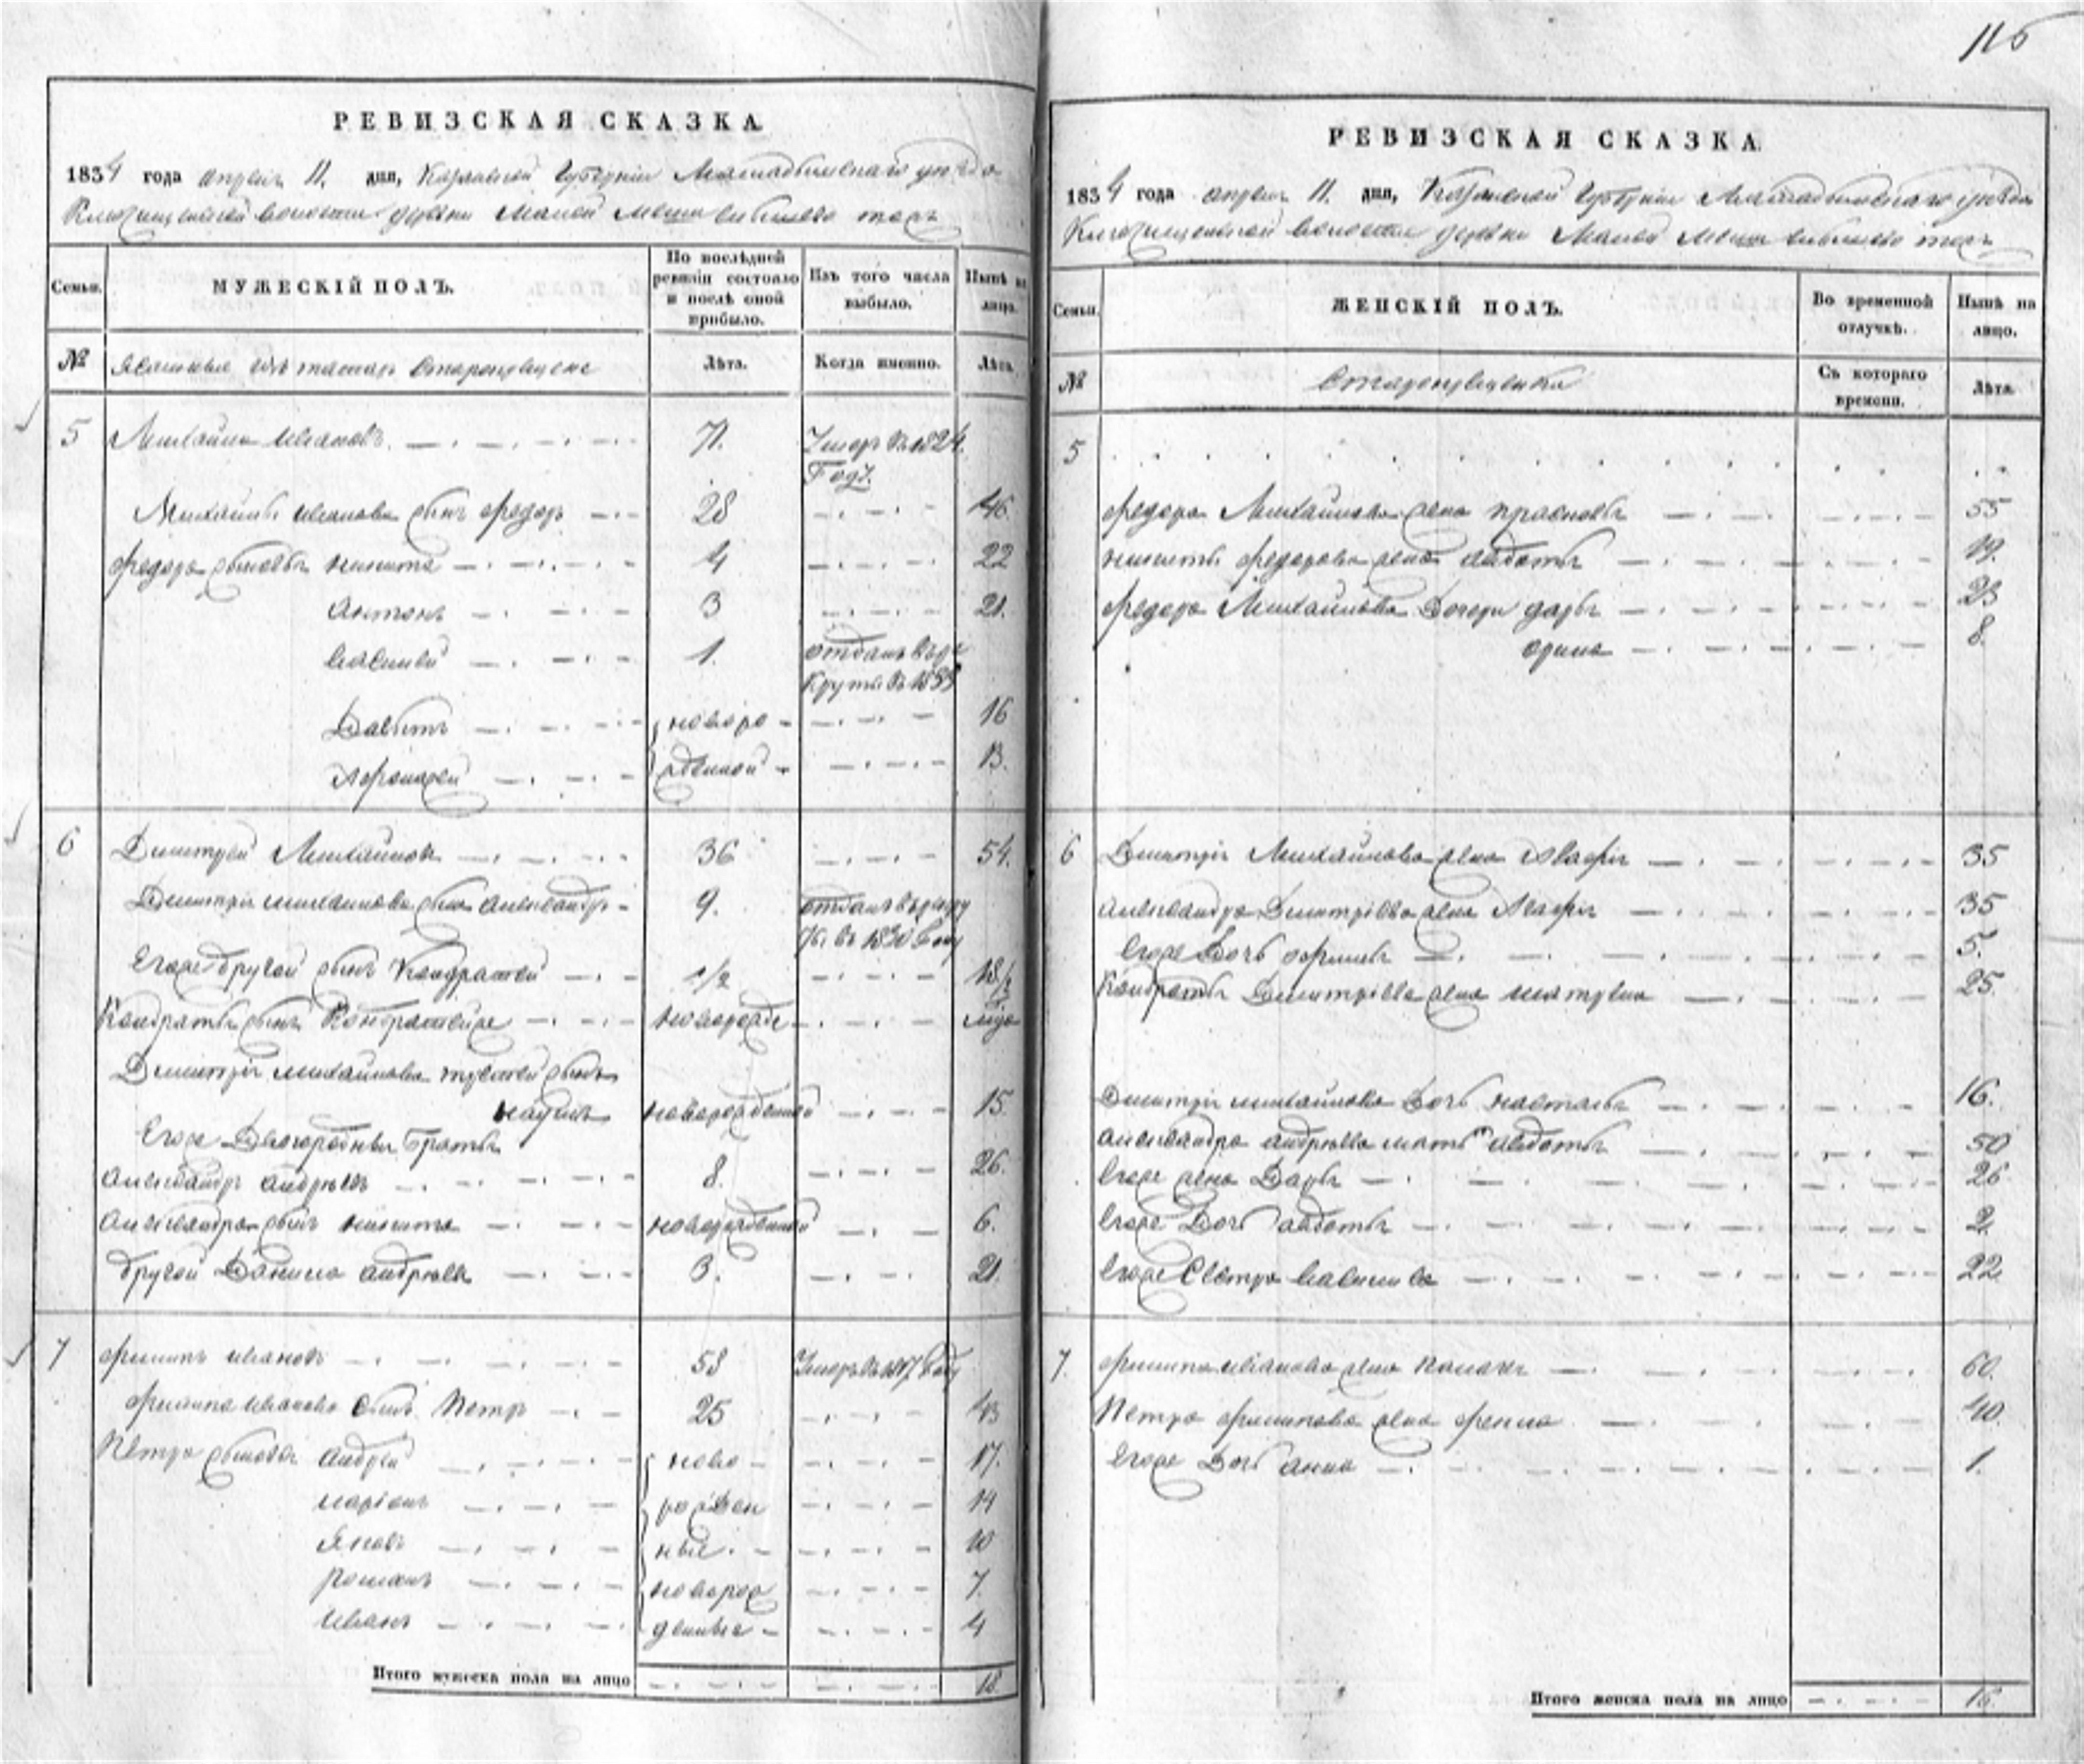 116
РЕВИЗСКАЯ СКАЗКА
1834 года апреля 11. дня, Казанской Губернии Мамадышского уезда
волости деревни Малой Меши тожъ
Семьи.
МУЖЕСКІЙ ПОЛЪ.
По послѣдней ревизіи состояло и послѣ оной прибыло.
Изъ того числа выбыло.
Нынѣ на лицо.
№
Ясашные изъ татаръ Старокрещены
Лѣта.
Когда именно.
Лѣта.
5 Михайла Ивановъ 71. Умеръ въ 1824. Году.
Михайлы Иванова сынъ Федоръ 28 46.
Федора сыновья Никита 4 22
Антонъ 3 21.
Василей 1. отданъ въ рекруты въ 1833
Давытъ новоро- 16
Афонасей жденной 13.
6 Димитрей Михайловъ 36 54.
Димитрія Михайлова сынъ Александръ 9. отданъ въ рекруты въ 1830 году
Егоже другой сынъ Кондратей 1/2 18 1/2
Кондратья сынъ Кондратейже новорожде
Димитрія Михайлова третей сынъ
Наумъ новорожденной 15.
Егоже Двоюродныя братья
Александръ Андреевъ 8. 26.
Александра сынъ Никита новорожденной 6.
другой Данило Андреевъ 3. 21.
7 Филипъ Ивановъ 53 Умеръ въ 1817 году
Филипа Иванова сынъ Петръ 25 43
Петра сыновья Андрей ново- 17.
Маріонъ рожден 14
Яковъ ные. 10
Романъ новорож 7.
Иванъ денные 4
Итого мужеска пола на лицо 18.
РЕВИЗСКАЯ СКАЗКА
1834 года апреля 11. дня, Казанской Губернии Мамадышского уезда
волости деревни Малой Меши тожъ
Семьи.
ЖЕНСКІЙ ПОЛЪ.
Во временной отлучкѣ.
Нынѣ на лицо.
№
Старокрещенки
Съ котораго времени.
Лѣта.
5
Федора Михайлова жена Прасковья 55
Никиты Федорова жена Авдотья 19.
Федора Михайлова Дочери Дарья 23
Орина 8.
6 Димитрія Михайлова жена Агафія 35
Александра Димитріева жена Агафія 35
Егоже Дочь Офимья 5.
Кондратья Димитріева жена Матрена 25.
Димитрія Михайлова Дочь Настасья 16.
Александра Андреева мать Авдотья 50
Егоже жена Дарья 26
Егоже Дочь Авдотья 2.
Егоже Сестра Василиса 22
7. Филипа Иванова жена 60.
Петра Филипова жена Фекла 40.
Егоже Дочь Анна 1.
Итого женска пола на лицо 16.